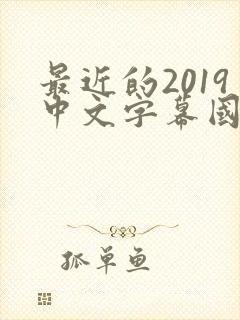 最近的2019
中文字幕國
孤单鱼